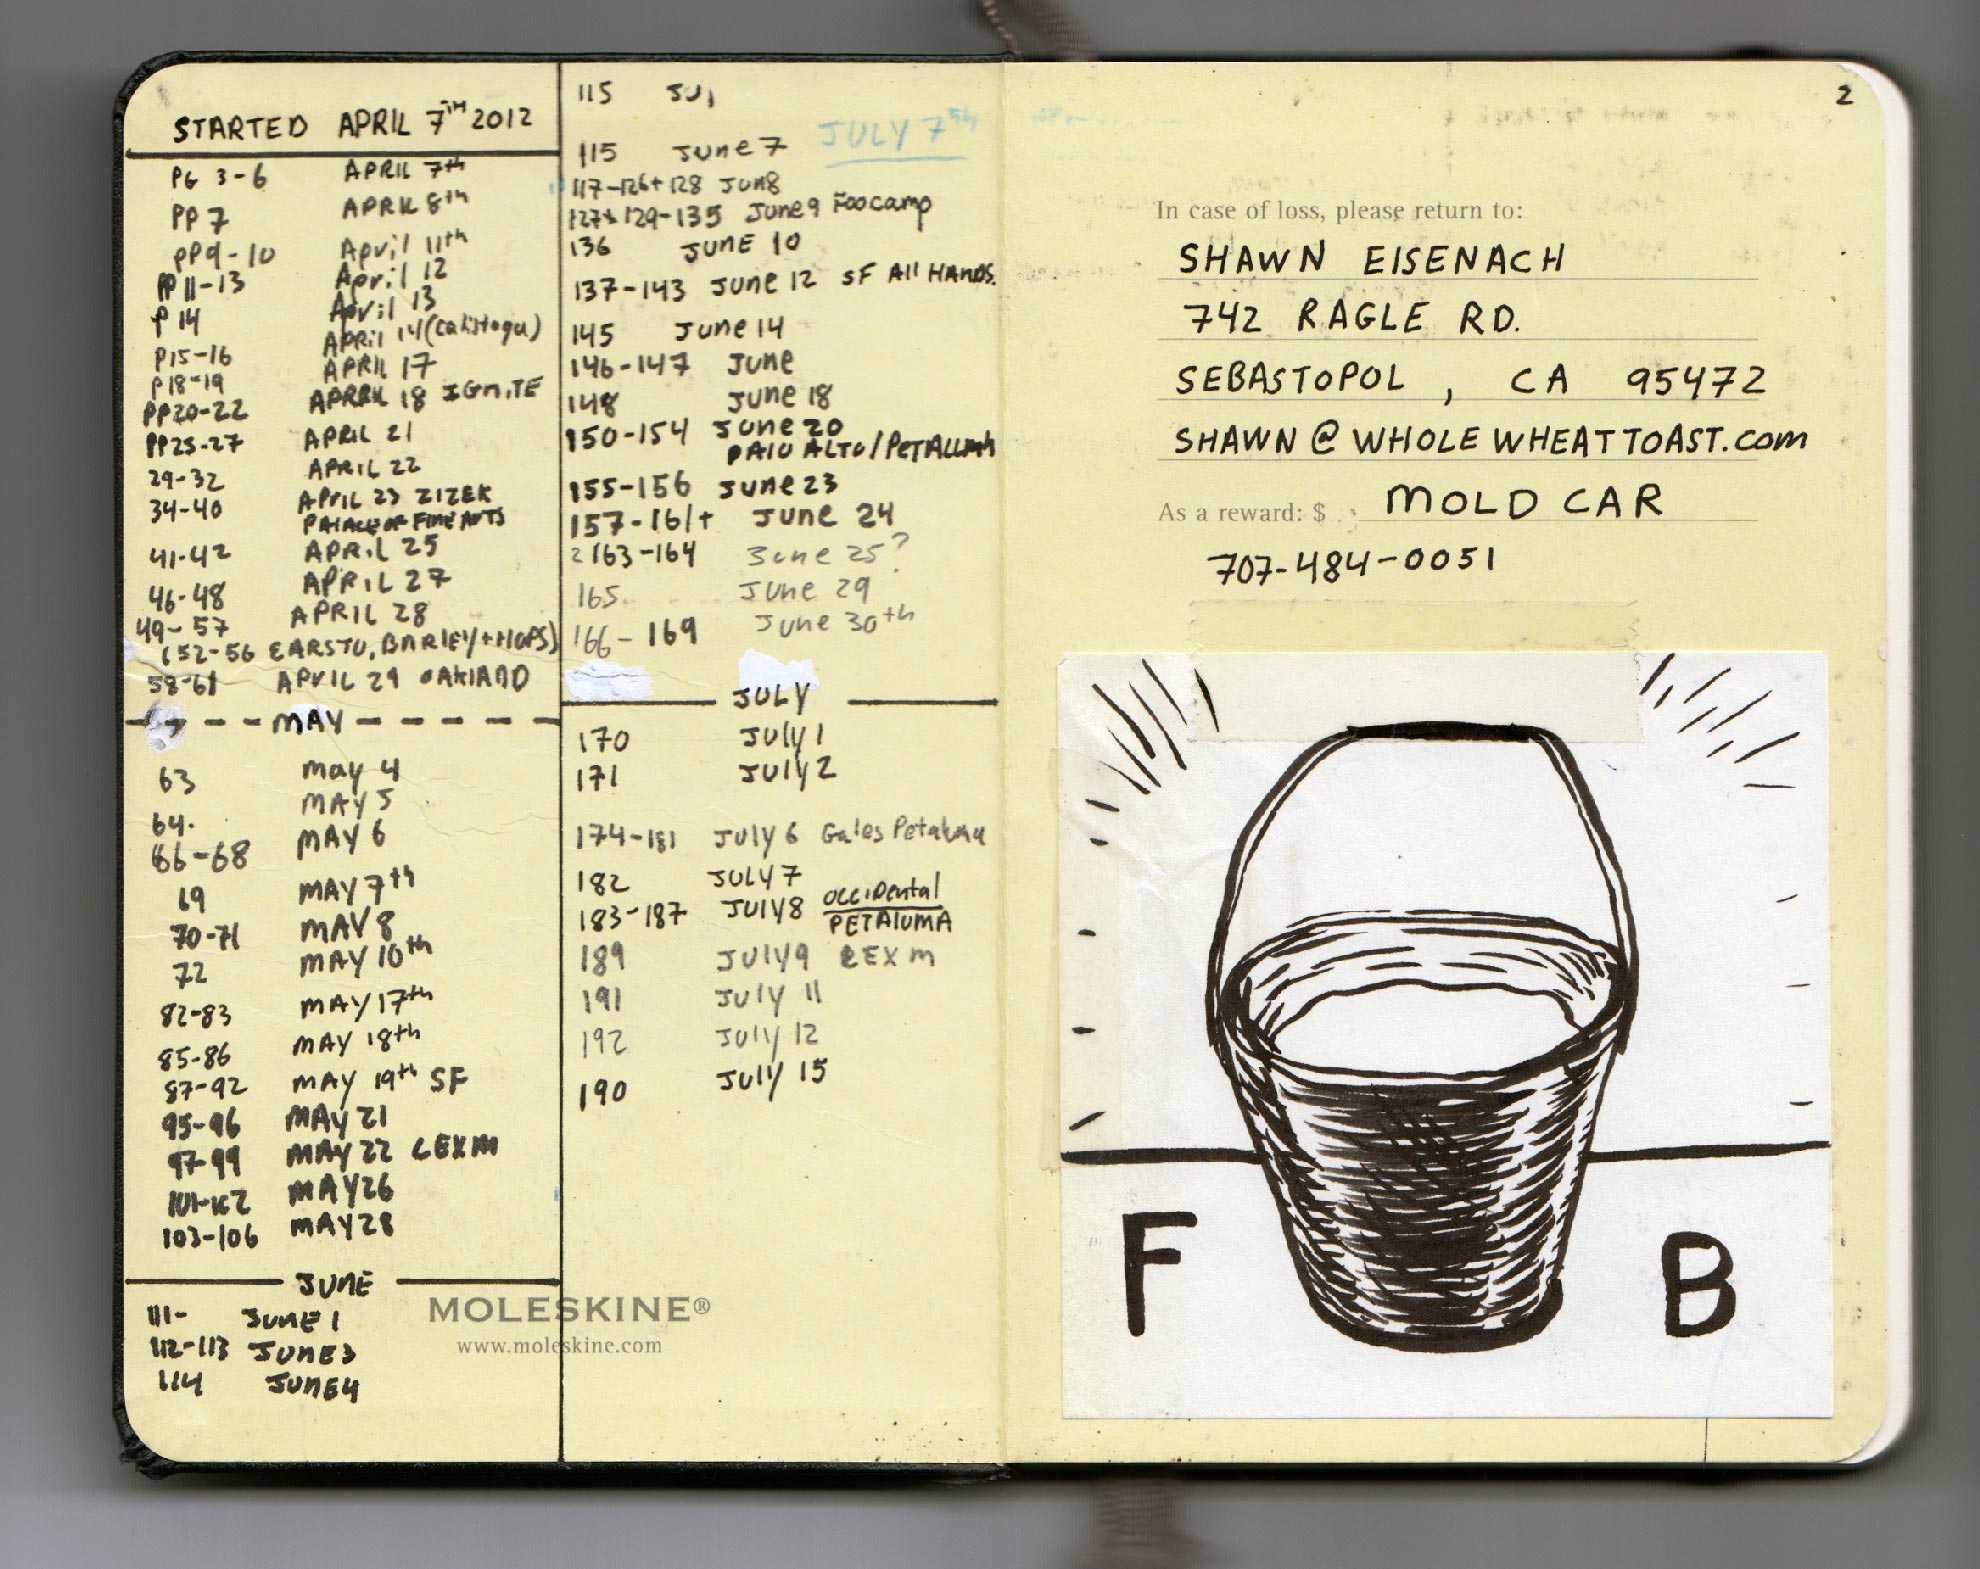 STARTED APRIL 7TH 2012
PG 3-6 APRIL 7th
PP 7 APRIL 8th
PP9-10 April 11th
PP 11-13 April 12
P 14 April 13
P15-16 APRIL 14 (Calistoga)
P18-19 APRIL 17
PP20-22 APRIL 18 IGNITE
PP25-27 APRIL 21
29-32 APRIL 22
34-40 APRIL 23 ZIZEK
PALACE OF FINE ARTS
41-42 APRIL 25
46-48 APRIL 27
49-57 APRIL 28
(52-56 EARSTU, BARLEY + HOPS)
58-61 APRIL 29 OAKLAND
MAY
63 May 4
64. MAY 5
66-68 MAY 6
69 MAY 7th
70-71 MAY 8
72 MAY 10th
82-83 MAY 17th
85-86 MAY 18th
87-92 MAY 19th SF
95-96 MAY 21
97-99 MAY 22 LEXM
101-102 MAY 26
103-106 MAY 28
JUNE
111- JUNE 1
112-113 JUNE 3
114 JUNE 4
MOLESKINE®
www.moleskine.com
115
JULY 7
115 June 7
117-126+128 Jun8
127+129-135 June 9 Foocamp
136 JUNE 10
137-143 June 12 SF All HANDS.
145 June 14
146-147 June
148 June 18
150-154 June 20
PALO ALTO/PETALUMA
155-156 June 23
157-161+ June 24
163-164 June 25?
165 June 29
166-169 June 30th
JULY
170 July 1
171 July 2
174-181 July 6 Gales Petaluma
182 JULY 7
183-187 July 8 OCCIDental
PETALUMA
189 July 9 LEXM
191 July 11
192 July 12
190 July 15
2
In case of loss, please return to:
SHAWN EISENACH
742 RAGLE RD.
SEBASTOPOL, CA 95472
SHAWN@WHOLEWHEATTOAST.com
As a reward: $ MOLD CAR
707-484-0051
F B